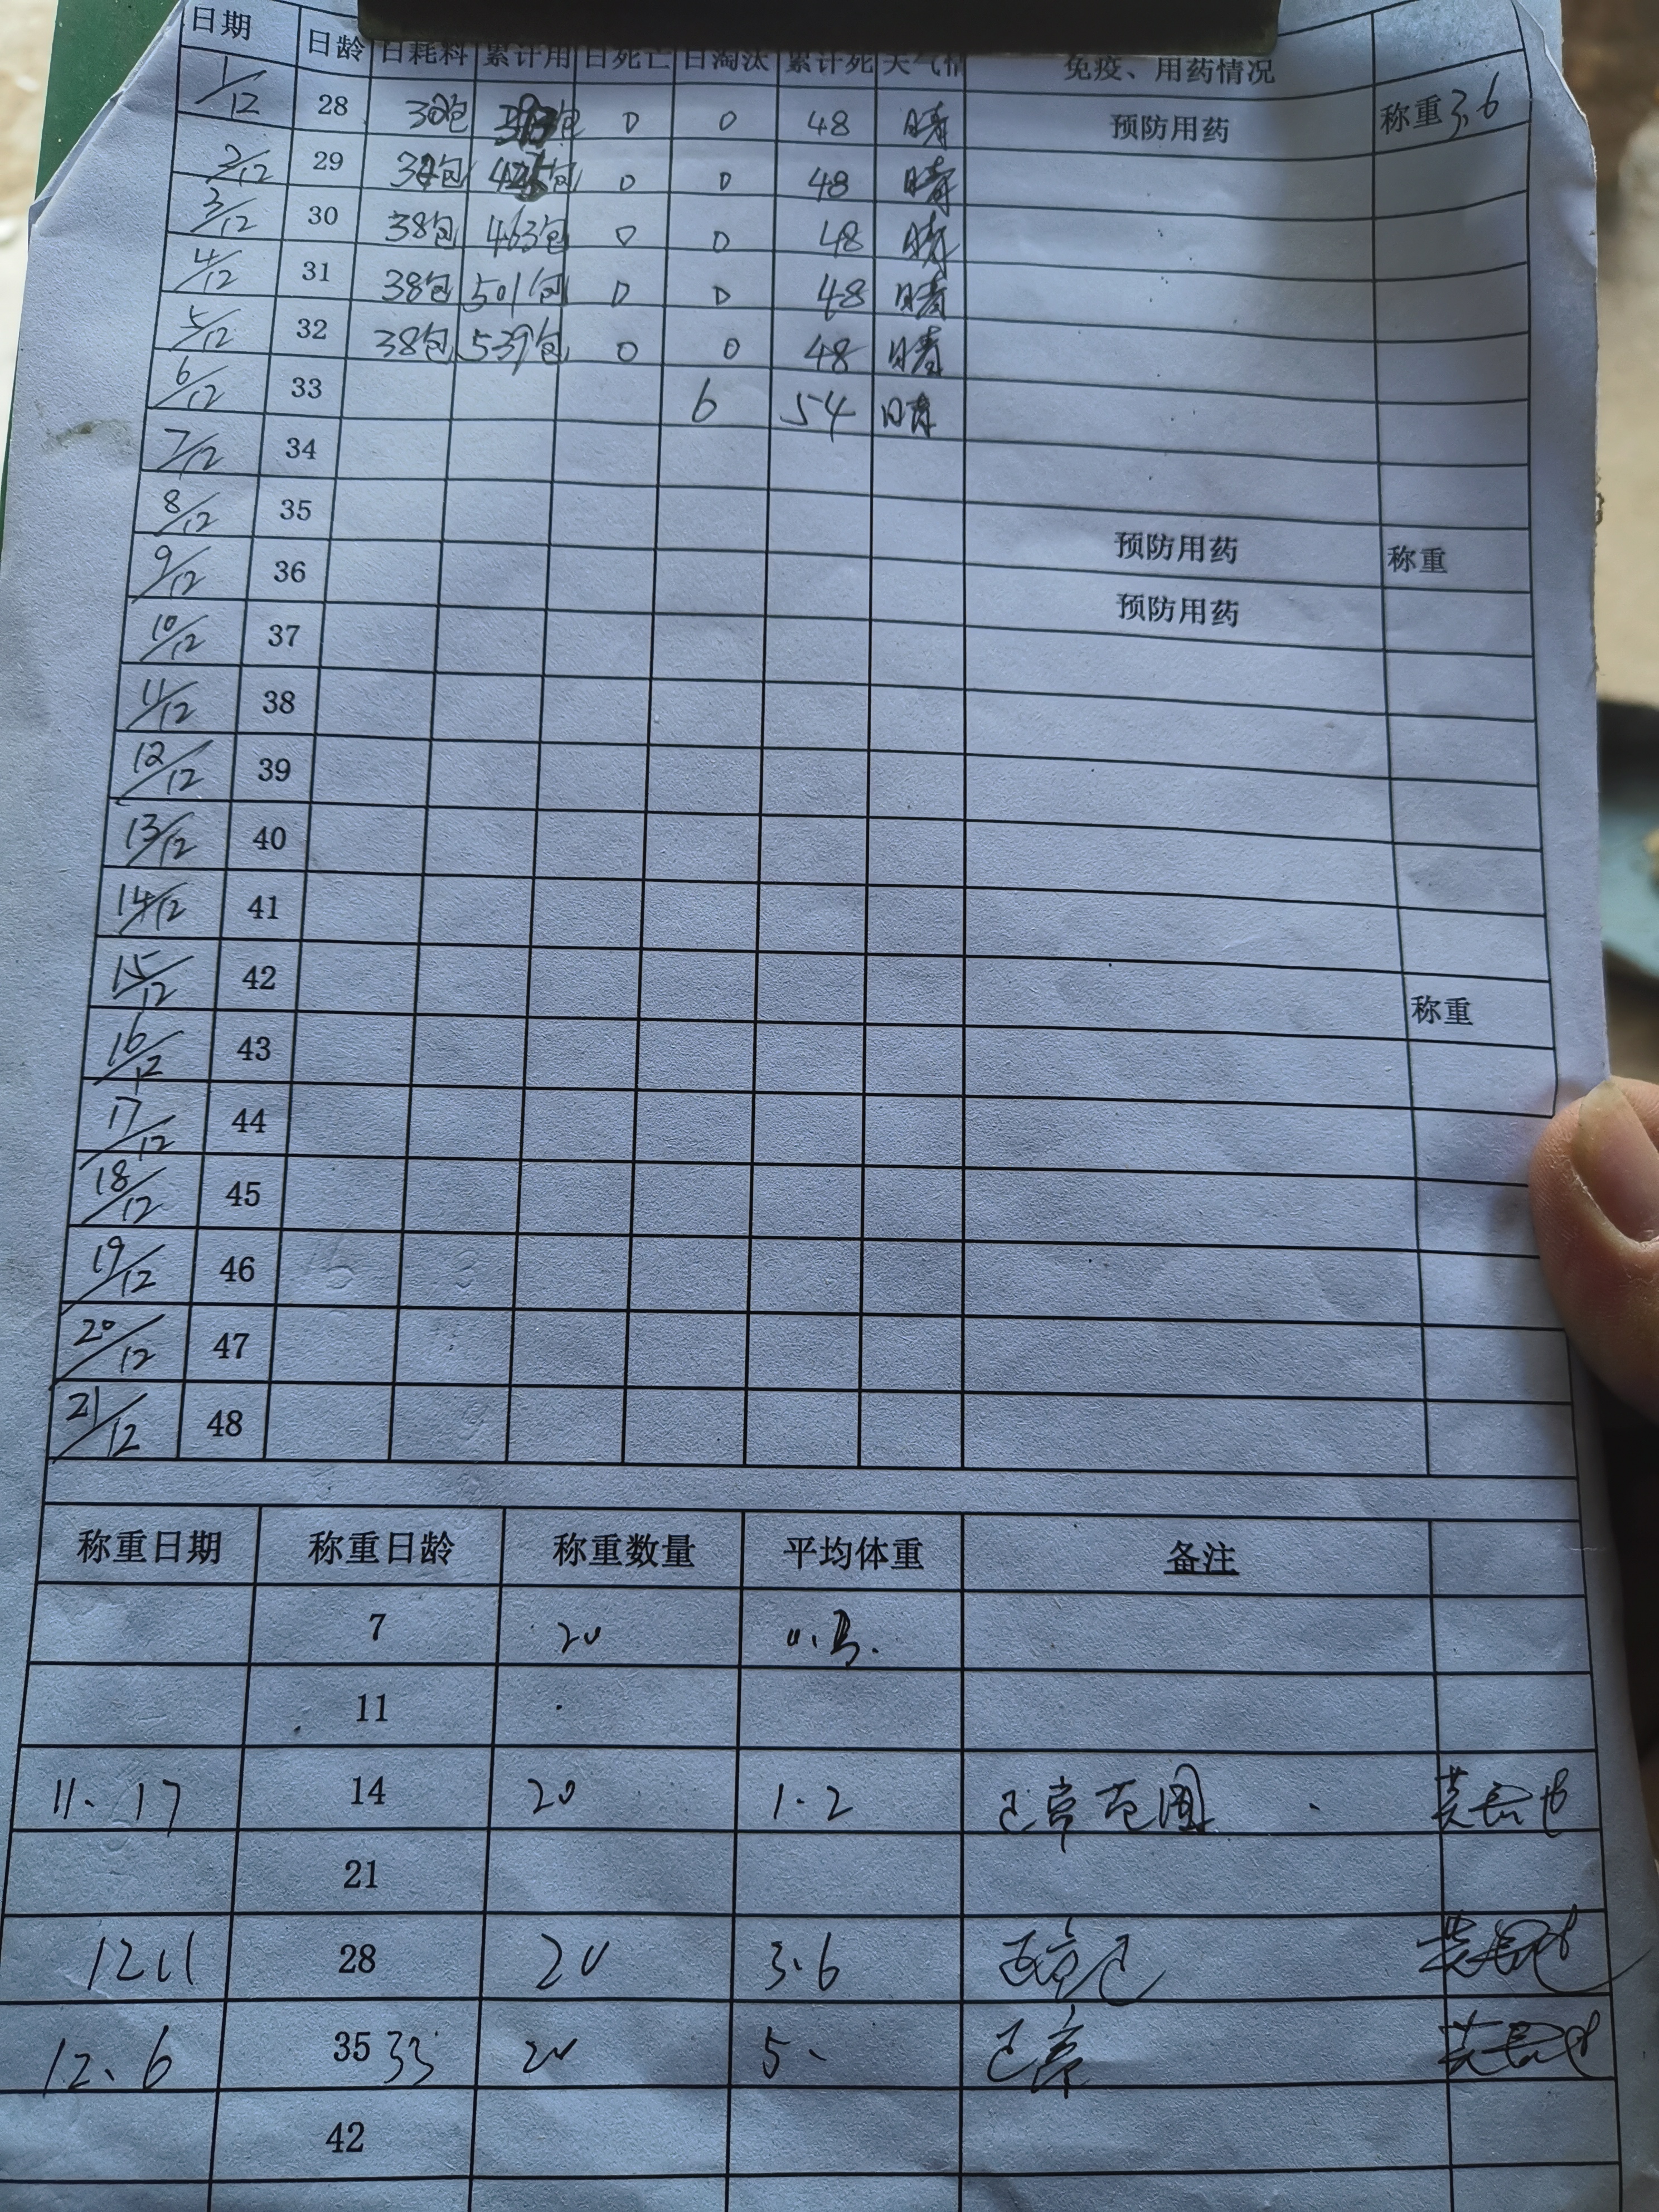 日期 日龄 日耗料 累计用 日死亡 日淘汰 累计死 天气情 免疫、用药情况
1/12 28 包 包 0 0 48 晴 预防用药 称重3.6
2/12 29 包 包 0 0 48 晴
3/12 30 38包 463包 0 0 48 晴
4/12 31 38包 501包 0 0 48 晴
5/12 32 38包 539包 0 0 48 晴
6/12 33 6 54 晴
7/12 34
8/12 35 预防用药 称重
9/12 36 预防用药
10/12 37
11/12 38
12/12 39
13/12 40
14/12 41
15/12 42 称重
16/12 43
17/12 44
18/12 45
19/12 46
20/12 47
21/12 48
称重日期 称重日龄 称重数量 平均体重 备注
7 20
11
11.17 14 20 1.2 正常范围
21
28 20 3.6
12.6 35 33 20 5. 正常
42